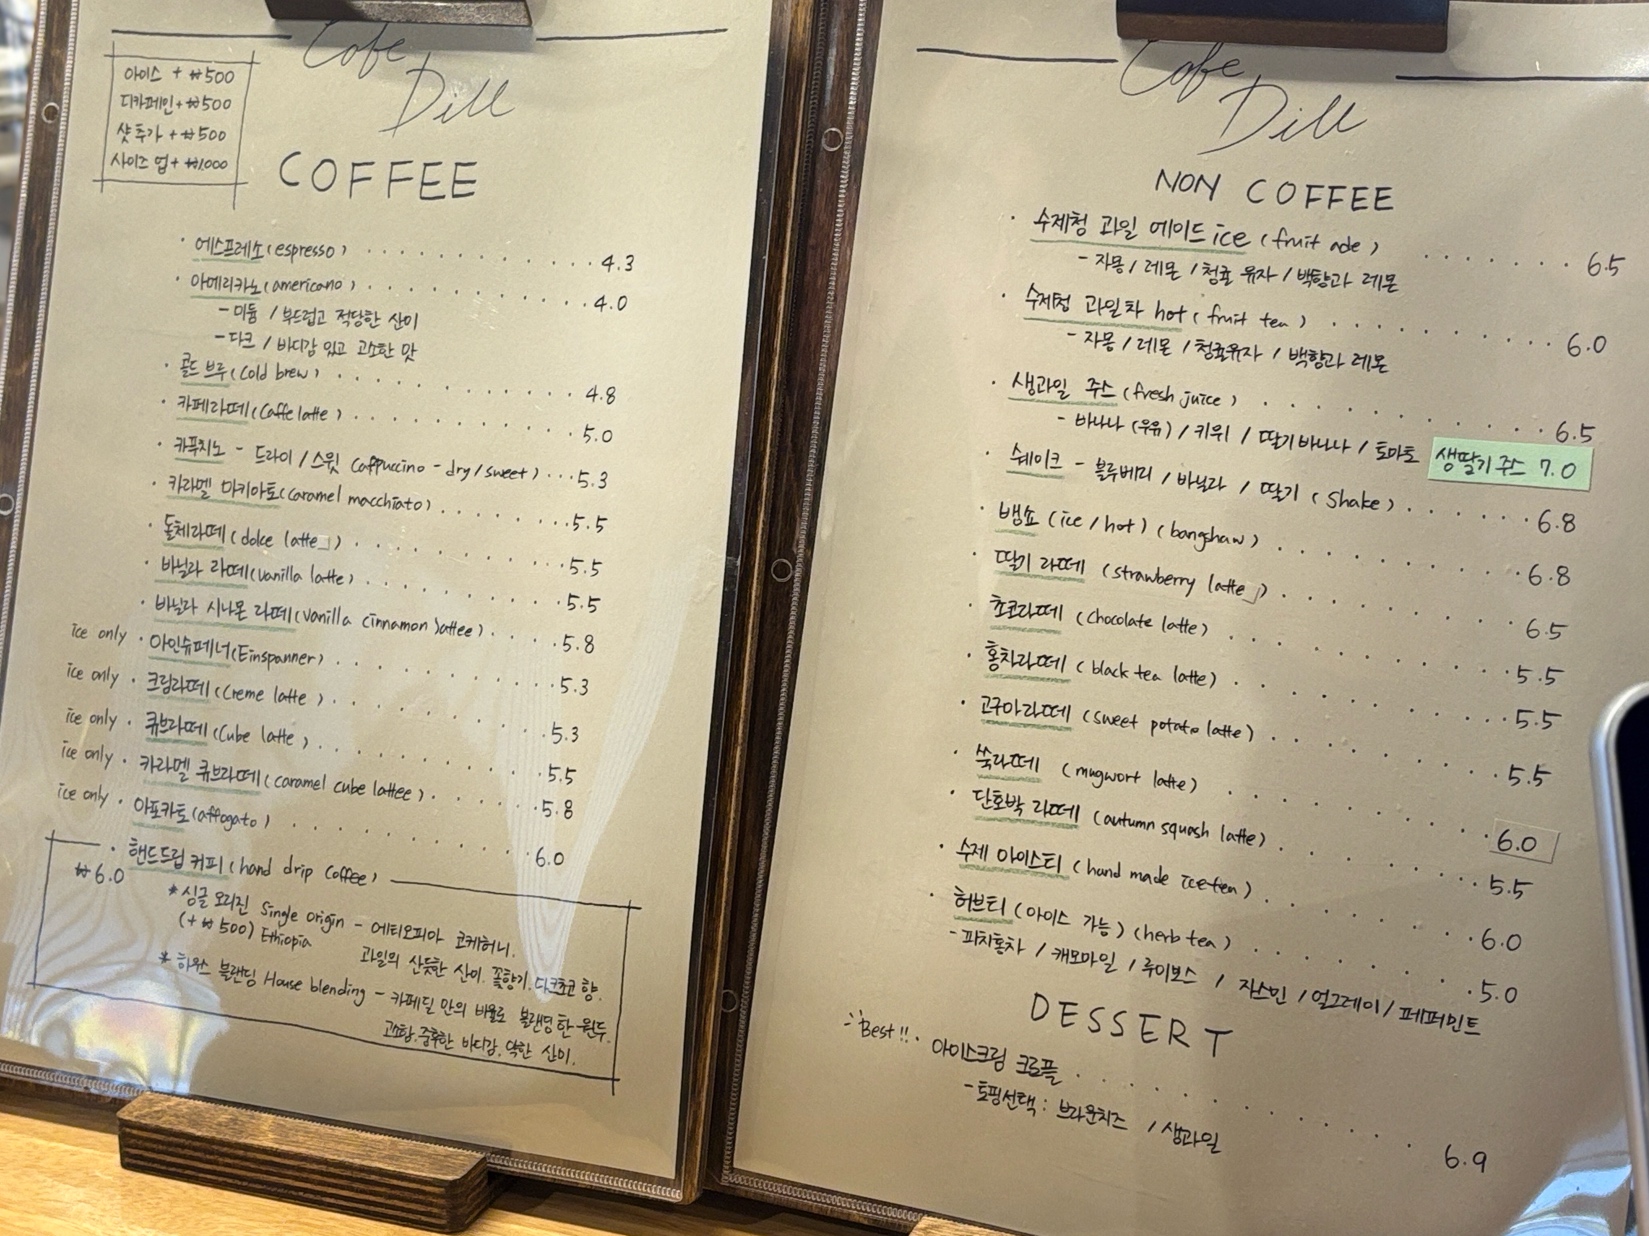 Cafe Dill
아이스 + ₩500
디카페인 + ₩500
샷 추가 + ₩500
사이즈 업 + ₩1,000
COFFEE
· 에스프레소 (espresso) 4.3
· 아메리카노 (americano) 4.0
- 미듐 / 부드럽고 적당한 산미
- 다크 / 바디감 있고 고소한 맛
· 콜드 브루 (Cold brew) 4.8
· 카페라떼 (Caffe latte) 5.0
· 카푸치노 - 드라이 / 스윗 Cappuccino - dry / sweet) 5.3
· 카라멜 마키아토 (Caramel macchiato) 5.5
· 돌체라떼 (dolce latte) 5.5
· 바닐라 라떼 (vanilla latte) 5.5
· 바닐라 시나몬 라떼 (vanilla cinnamon lattee) 5.8
ice only · 아인슈페너 (Einspanner) 5.3
ice only · 크림라떼 (Creme latte) 5.3
ice only · 큐브라떼 (Cube latte) 5.5
ice only · 카라멜 큐브라떼 (caramel cube lattee) 5.8
ice only · 아포카토 (affogato) 6.0
· 핸드드립 커피 (hand drip coffee)
₩6.0
* 싱글 오리진 Single origin - 에티오피아 코케허니.
(+ ₩500) Ethiopia 과일의 산듯한 산미. 꽃향기. 다크초코 향.
* 하우스 블랜딩 House blending - 카페딜 만의 비율로 블랜딩한 원두.
고소함. 중후한 바디감. 약한 산미.
Cafe Dill
NON COFFEE
· 수제청 과일 에이드 ice (fruit ade) 6.5
- 자몽 / 레몬 / 청귤 유자 / 백향과 레몬
· 수제청 과일차 hot (fruit tea) 6.0
- 자몽 / 레몬 / 청귤유자 / 백향과 레몬
· 생과일 주스 (fresh juice) 6.5
- 바나나 (우유) / 키위 / 딸기바나나 / 토마토 생딸기 주스 7.0
· 쉐이크 - 블루베리 / 바닐라 / 딸기 (Shake) 6.8
· 뱅쇼 (ice / hot) (bangshaw) 6.8
· 딸기 라떼 (strawberry latte) 6.5
· 초코라떼 (chocolate latte) 5.5
· 홍차라떼 (black tea latte) 5.5
· 고구마라떼 (sweet potato latte) 5.5
· 쑥라떼 (mugwort latte) 6.0
· 단호박 라떼 (autumn squash latte) 5.5
· 수제 아이스티 (hand made ice tea) 6.0
· 허브티 (아이스 가능) (herb tea) 5.0
- 피치홍차 / 캐모마일 / 루이보스 / 자스민 / 얼그레이 / 페퍼민트
DESSERT
Best!! · 아이스크림 크로플 6.9
- 토핑선택 : 브라운치즈 / 생과일